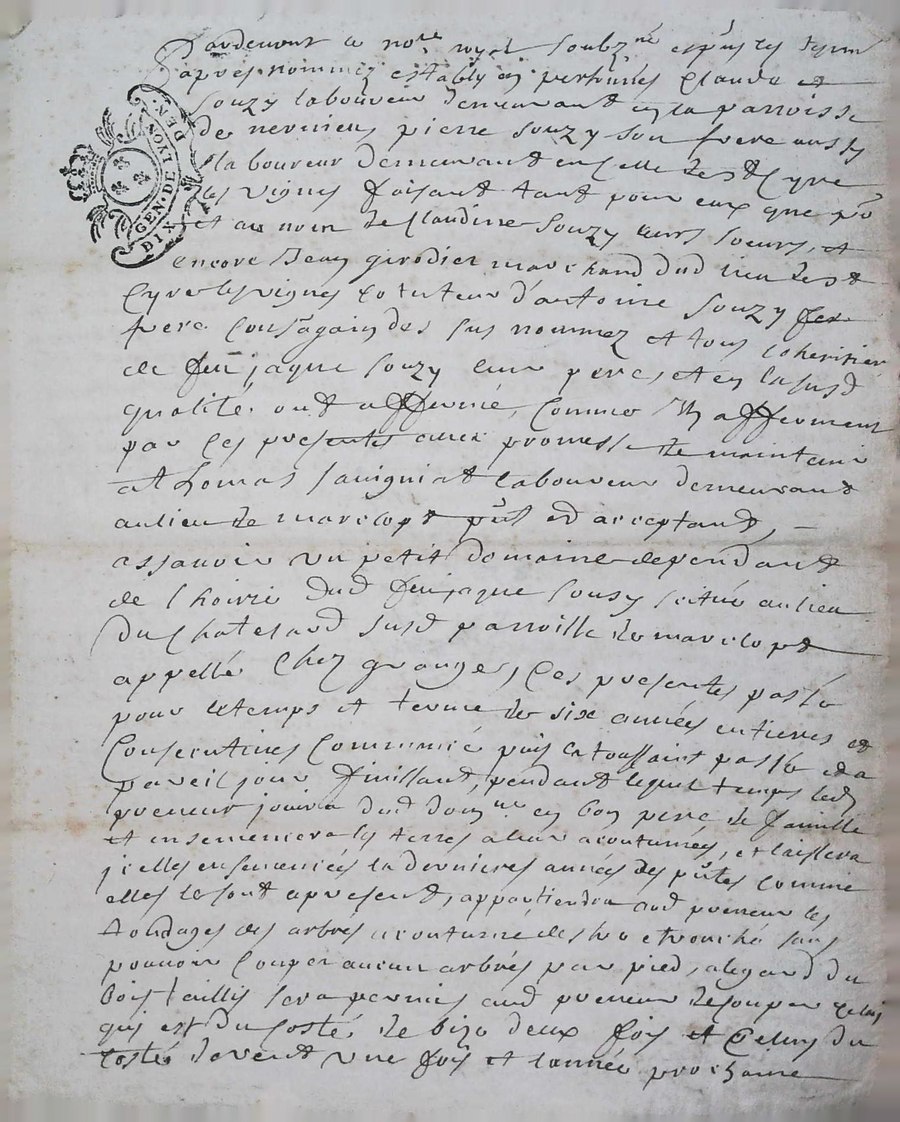 GEN. DE LYON
DIX DEN.
Pardevant le no.re royal soubz.né et p̃ns les tesm
apres nommez establis en personnes Claude et
Souzy laboureur demeurant en la parroisse
de nervieu, pierre Souzy son frere aussy
laboureur demeurant en celle de St Cyre
les vignes faisant tant pour eux que po
et au nom de Claudine Souzy leurs soeurs, et
encore Jean girodier marchand dud lieu de St
Cyre les vignes cotuteur d'antoine Souzy
frere consagain des sus nommez et tous coheritier
de feu jaque Souzy leur pere, et en lasusd
qualité ont affermé, comme Ils afferment
par ces presentes avec promesse de maintenir
a thomas Sauigniat laboureur demeurant
au lieu de marclopt p̃nt et acceptant,
assauoir un petit domaine dependant
de l'hoirie dud feu jaque Souzy scitué au lieu
du Chatelard susd parroisse de marclopt
appellé chez grange, Ces presentes passé
pour le temps et terme de six années entieres et
Consecutives Commencé puis la toussaint passé et a
pareil jour finissant, pendant lequel temps led
preneur jouira dud dom.ne en bon pere de famille
et ensemencera les terres a leur acoutumées, et laissera
jcelles ensemencées la derniere année des p̃ntes comme
elles le sont apresent, appartiendra aud preneur les
tondages des arbres acoutumé destre etronché sans
pouuoir couper aucun arbres par pied, alegard du
bois taillis sera permis aud preneur de couper celuy
qui est du costé de bize deux fois et celuy du
costé de vent une fois et l'année prochaine